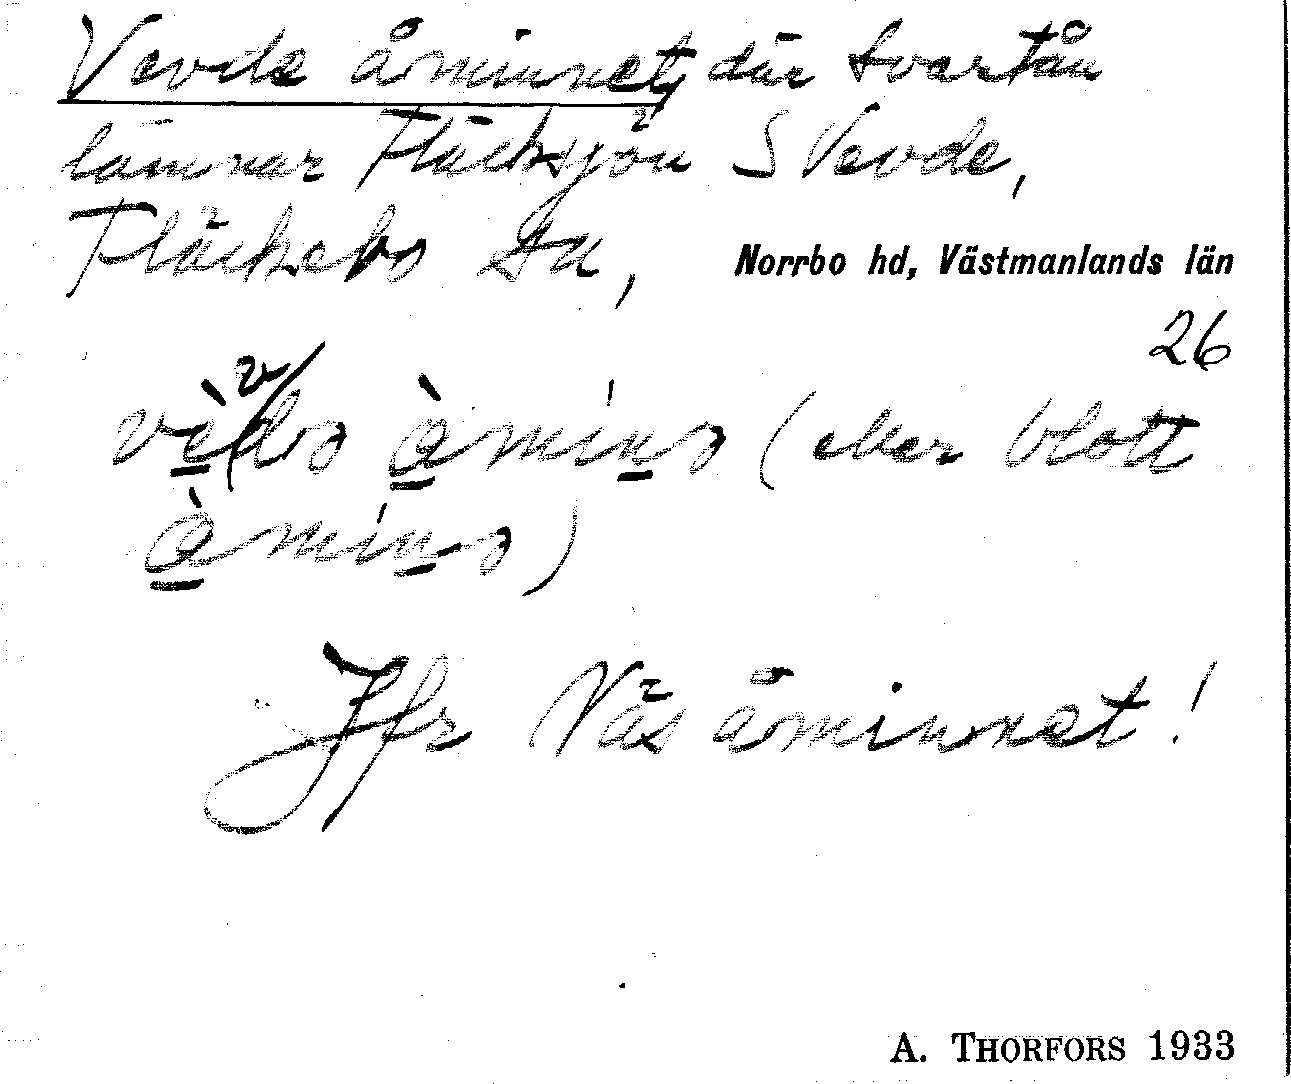 Vevde åminnet, där Svartån
lämnar Fläcksjön S Vevde,
Fläckebo sn, Norrbo hd, Västmanlands län
26
vèvdə å̀minə (eller blott
å̀minə)
Jfr Vås åminnet!
A. THORFORS 1933